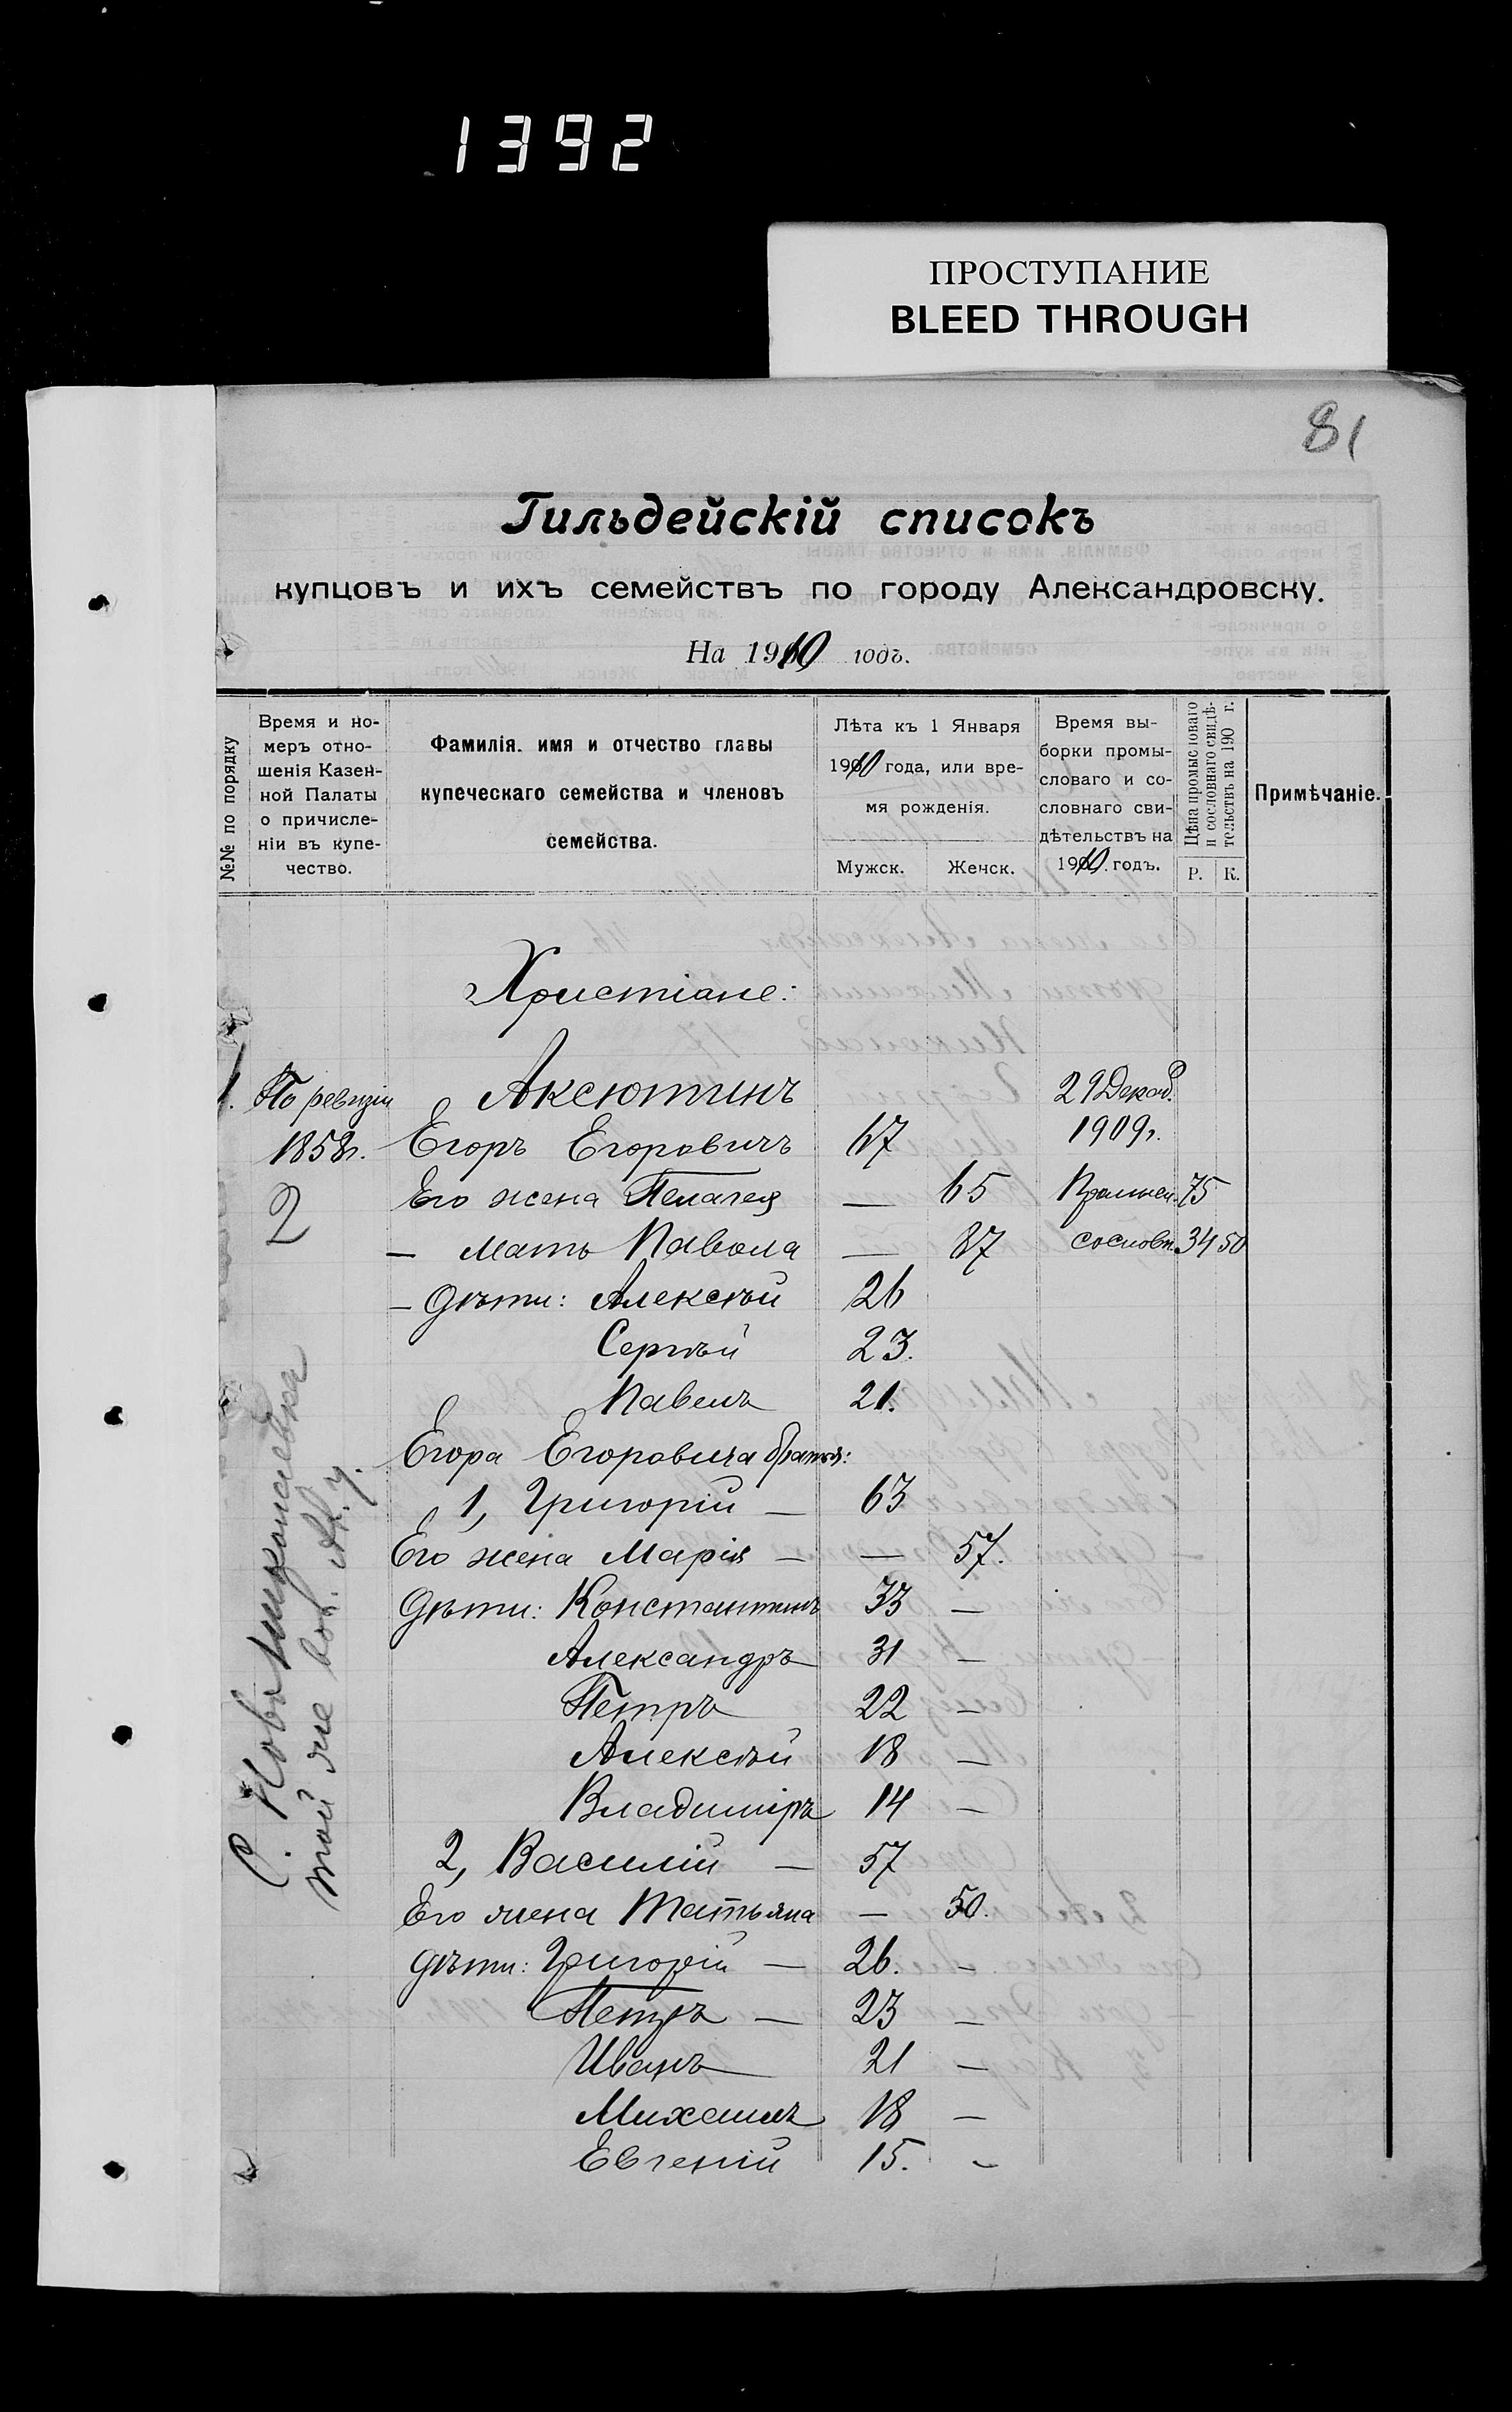 1392
ПРОСТУПАНИЕ
BLEED THROUGH
81
Гильдейскій списокъ
купцовъ и ихъ семействъ по городу Александровску.
На 1910 годъ.
№№ по порядку
Время и но-
меръ отно-
шенія Казен-
ной Палаты
о причисле-
ніи въ купе-
чество.
Фамилія. имя и отчество главы
купеческаго семейства и членовъ
семейства.
Лѣта къ 1 Января
1910 года, или вре-
мя рожденія.
Мужск. Женск.
Время вы-
борки промы-
словаго и со-
словнаго сви-
дѣтельствъ на
1910 годъ.
Цѣна промысловаго
и сословнаго свидѣ-
тельствъ на 190 г.
Р. К.
Примѣчаніе.
Христіане:
1. По ревизіи Аксютинъ 29 Декаб.
1858г. Егоръ Егоровичъ 67 1909г.
2 Его жена Пелагея — 65 Промысл. 75
— мать Павола — 87 сословн. 34 50
— дѣти: Алексѣй 26
Сергѣй 23.
Павелъ 21.
Егора Егоровича братья:
1, Григорій — 63
Его жена Марія — — 57.
Дѣти: Константинъ 33 —
Александръ 31 —
Петръ 22 —
Алексѣй 18 —
Владиміръ 14 —
2, Василій — 57
Его жена Татьяна — 50.
дѣти: Григорій — 26. -
Петръ — 23 —
Иванъ 21 —
Михаилъ 18 —
Евгеній 15. -
С. Ново николаевка
той же вол. А. у.